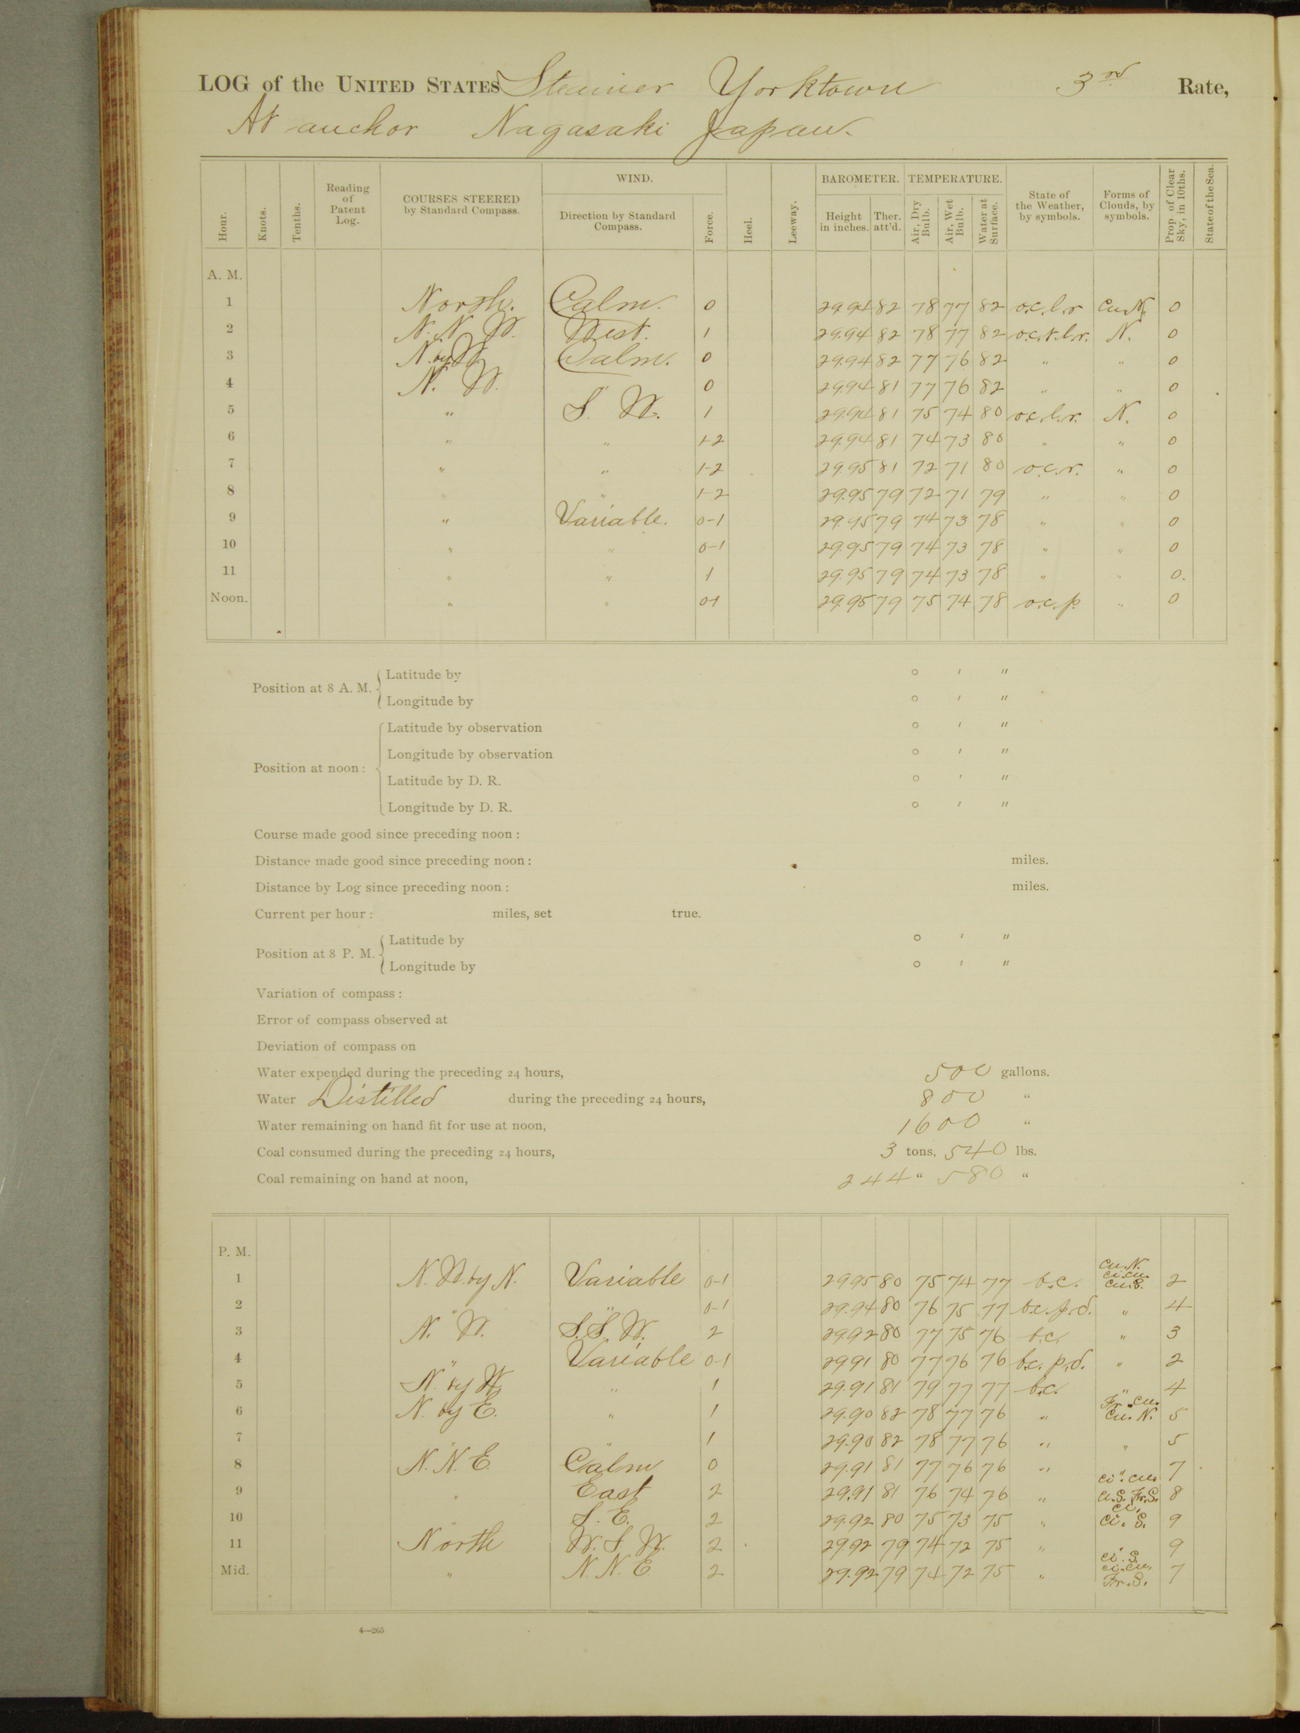 LOG of the UNITED STATES Steamer Yorktown 3rd Rate,
At anchor Nagasaki Japan.
Hour. Knots. Tenths. Reading of Patent Log. COURSES STEERED by Standard Compass. WIND. Direction by Standard Compass. Force. Heel. Leeway. BAROMETER. Height in inches. Ther. att'd. TEMPERATURE. Air, Dry Bulb. Air, Wet Bulb. Water at Surface. State of the Weather, by symbols. Forms of Clouds, by symbols. Prop. of Clear Sky, in 10ths. State of the Sea.
A. M.
1 North. Calm. 0 29.94 82 78 77 82 o.c.l.r Cu.N. 0
2 N. N. W. West. 1 29.94 82 78 77 82 o.c.t.l.r. N. 0
3 N. by W. Calm. 0 29.94 82 77 76 82 " " 0
4 N. W. " 0 29.94 81 77 76 82 " " 0
5 " S. W. 1 29.94 81 75 74 80 o.c.l.r. N. 0
6 " " 1-2 29.94 81 74 73 80 " " 0
7 " " 1-2 29.95 81 72 71 80 o.c.r. " 0
8 " " 1-2 29.95 79 72 71 79 " " 0
9 " Variable. 0-1 29.95 79 74 73 78 " " 0
10 " " 0-1 29.95 79 74 73 78 " " 0
11 " " 1 29.95 79 74 73 78 " " 0.
Noon. " " 0-1 29.95 79 75 74 78 o.c.p. " 0
Position at 8 A. M. Latitude by ° ′ ″
Longitude by ° ′ ″
Position at noon: Latitude by observation ° ′ ″
Longitude by observation ° ′ ″
Latitude by D. R. ° ′ ″
Longitude by D. R. ° ′ ″
Course made good since preceding noon:
Distance made good since preceding noon: miles.
Distance by Log since preceding noon: miles.
Current per hour: miles, set true.
Position at 8 P. M. Latitude by ° ′ ″
Longitude by ° ′ ″
Variation of compass:
Error of compass observed at
Deviation of compass on
Water expended during the preceding 24 hours, 500 gallons.
Water Distilled during the preceding 24 hours, 800 "
Water remaining on hand fit for use at noon, 1600 "
Coal consumed during the preceding 24 hours, 3 tons, 540 lbs.
Coal remaining on hand at noon, 244 " 580 "
P. M.
1 N. W. by N. Variable 0-1 29.95 80 75 74 77 b.c. Cu.N. Ci.Cu. Cu.S. 2
2 " " 0-1 29.94 80 76 75 77 b.c.p.d. " 4
3 N. W. S.S.W. 2 29.92 80 77 75 76 b.c. " 3
4 " Variable 0-1 29.91 80 77 76 76 b.c. p.d. " 2
5 N. by W. " 1 29.91 81 79 77 77 b.c. " 4
6 N. by E. " 1 29.90 82 78 77 76 " Fr. Cu. Cu. N. 5
7 " " 1 29.90 82 78 77 76 " " 5
8 N. N. E. Calm 0 29.91 81 77 76 76 " " 7
9 " East 2 29.91 81 76 74 76 " Ci. Cu. Fr.S. 8
10 " S. E. 2 29.92 80 75 73 75 " Ci. Ci. S. 9
11 North W. S. W. 2 29.92 79 74 72 75 " " 9
Mid. " N. N. E. 2 29.92 79 74 72 75 " Ci. S. Ci.Cu. Fr.S. 7
4—265